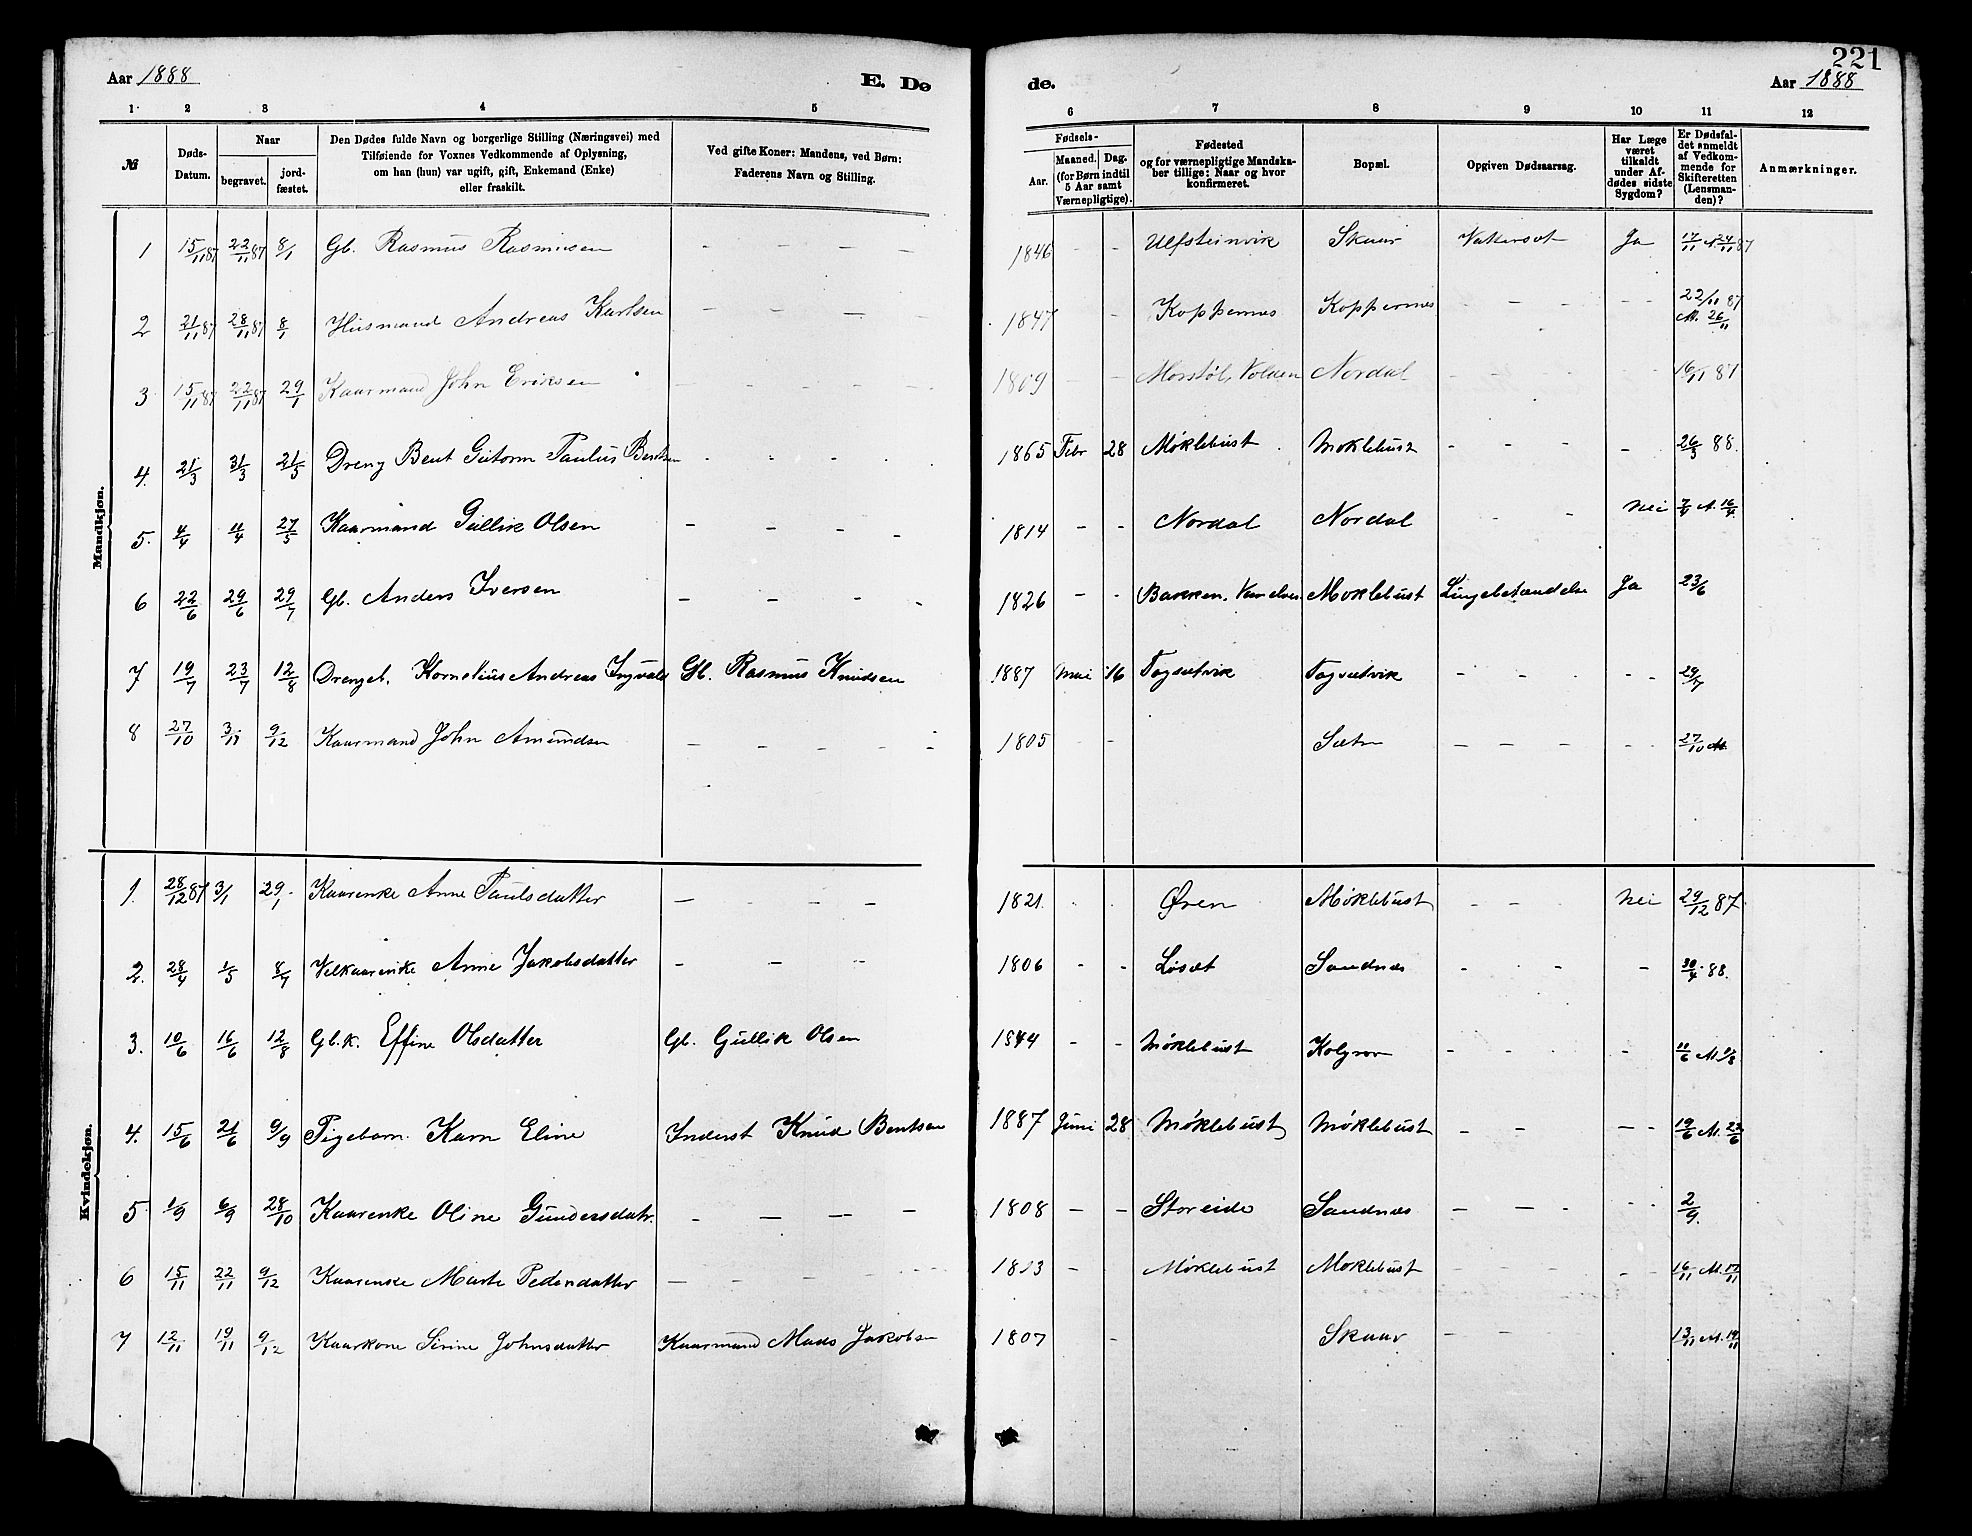 221
Aar 1888
E. Dø
de.
Aar 1888
1 2 3 4 5 6 7 8 9 10 11 12
№
Døds-Datum.
Naar
begravet.
jord-fæstet.
Den Dødes fulde Navn og borgerlige Stilling (Næringsvei) med
Tilføiende for Voxnes Vedkommende af Oplysning,
om han (hun) var ugift, gift, Enkemand (Enke)
eller fraskilt.
Ved gifte Koner: Mandens, ved Børn:
Faderens Navn og Stilling.
Fødsels-
Aar.
Maaned. Dag.
(for Børn indtil
5 Aar samt
Værnepligtige).
Fødested
og for værnepligtige Mandska-
ber tillige: Naar og hvor
konfirmeret.
Bopæl.
Opgiven Dødsaarsag.
Har Læge
været
tilkaldt
under Af-
dødes sidste
Sygdom?
Er Dødsfal-
det anmeldt
af Vedkom-
mende for
Skifteretten
(Lensman-
den)?
Anmærkninger.
Mandkjøn.
1 15/11 87 22/11 87 8/1 Gb. Rasmus Rasmusen - - - 1846 - - Ulfsteinvik Skaar Vattersot Ja 17/11 A. 24/11 87
2 21/11 87 28/11 87 8/1 Husmand Andreas Karlsen - - - - 1847 - Koppernes Koppernes - - - - - 22/11 87 M. 26/11
3 15/11 87 22/11 87 29/1 Kaarmand John Eriksen - - - - 1809 - - Morstøl, Volden Nordal - - - - 16/11 87
4. 21/3 31/3 21/5 Dreng Bent Gutorm Paulus Bentsen - - - - 1865 Febr 28 Møklebust Moklebust - - - - 26/3 88.
5. 4/4 4/4 27/5 Kaarmand Gullik Olsen - - - - 1814 - - Nordal Nordal - - Nei 7/4 A. 16/4
6 22/6 29/6 29/7 Gb. Anders Iversen - - - - 1826 - - Bakken, Vanelven Moklebust Lungebetændelse Ja 23/6
7 19/7 23/7 12/8 Drengeb. Kornelius Andreas Ingvald Gb. Rasmus Knudsen 1887 Mai 16 Togsætvik Togsætvik - - - - - 29/7
8 27/10 3/11 9/12 Kaarmand John Amundsen - - - - 1805 - Sætre - - - - - 27/10 M.
Hvindekjøn.
1. 28/12 87 3/1 29/1 Kaarenke Anne Paulsdatter - - - - 1821. - - Øren Møklebust - - - Nei 29/12 87
2. 28/4 1/5 8/7 Velkaarenke Anne Jakobsdatter - - - 1806 - - Løsæt Sandnæs - - - - 30/4 88.
3. 10/6 16/6 12/8 Gb.k. Effine Olsdatter Gb. Gullik Olsen 1844 - - Møklebust Kolgrov - - - - 11/6 M. 1/8
4. 15/6 21/6 9/9 Pigebarn. Karn Eline Inderst Knud Bentsen 1887 Juni 28 Møklebust Møklebust - - - - 19/6 M. 23/6
5 1/9 6/9 28/10 Kaarenke Oline Gundersdatr. - - - - 1808 - - Storeide Sandnæs - - - - - 2/9.
6 15/11 22/11 9/12 Kaarenke Marte Pedersdatter - - - - 1813 - Møklebust Moklebust - - - - - 16/11 M. 17/11
7 12/11 19/11 9/12 Kaarkone Sirine Johnsdatter Kaarmand Mads Jakobsen 1807 - Skaar - - - 13/11 M. 19/11